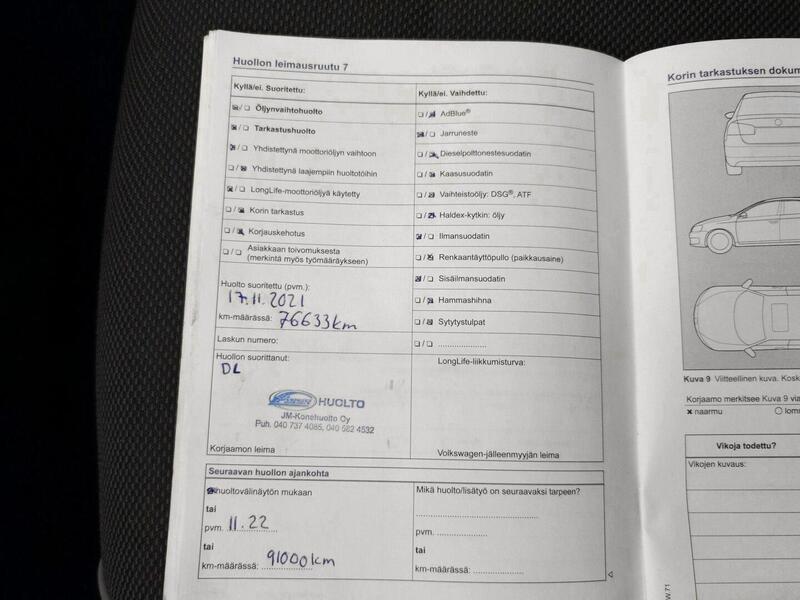 Huollon leimausruutu 7
Kyllä/ei. Suoritettu:
Öljynvaihtohuolto
Tarkastushuolto
Yhdistettynä moottoriöljyn vaihtoon
Yhdistettynä laajempiin huoltotöihin
LongLife-moottoriöljyä käytetty
Korin tarkastus
Korjauskehotus
Asiakkaan toivomuksesta
(merkintä myös työmääräykseen)
Huolto suoritettu (pvm.):
17.11.2021
km-määrässä: 76633km
Laskun numero:
Huollon suorittanut:
DL
HUOLTO
JM-Konehuolto Oy
Puh. 040 737 4085, 040 582 4532
Korjaamon leima
Kyllä/ei. Vaihdettu:
AdBlue®
Jarruneste
Dieselpolttonestesuodatin
Kaasusuodatin
Vaihteistoöljy: DSG®, ATF
Haldex-kytkin: öljy
Ilmansuodatin
Renkaantäyttöpullo (paikkausaine)
Sisäilmansuodatin
Hammashihna
Sytytystulpat
LongLife-liikkumisturva:
Volkswagen-jälleenmyyjän leima
Seuraavan huollon ajankohta
huoltovälinäytön mukaan
tai
pvm. 11.22
tai
km-määrässä: 91000km
Mikä huolto/lisätyö on seuraavaksi tarpeen?
pvm.
tai
km-määrässä:
Korin tarkastuksen dokum
Kuva 9 Viitteellinen kuva. Kosk
Korjaamo merkitsee Kuva 9 via
x naarmu
lomm
Vikoja todettu?
Vikojen kuvaus: